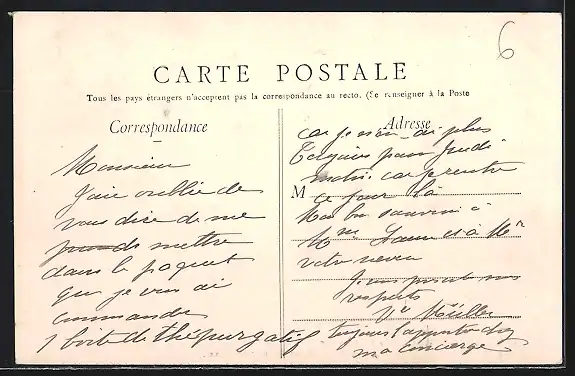 6
CARTE POSTALE
Tous les pays étrangers n'acceptent pas la correspondance au recto. (Se renseigner à la Poste
Correspondance
Monsieur
J'aie oublié de
vous dire de me
mettre
dans le paquet
que je vous ai
commandé
1 boite de thé purgatif
Adresse
car je n'en ai plus
toujours pour Jeudi
matin car je rentre
M
ce jour là
bon souvenir à
Mme et à Mr
votre neveu
respects
Ve Müller
toujours chez
ma concierge